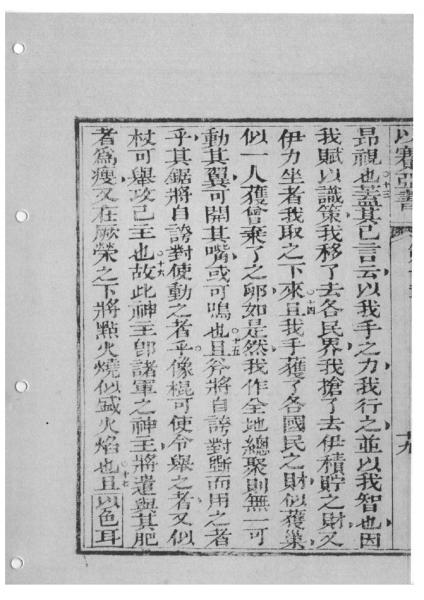 以賽亞書
十九
昂視也蓋其已言云以我手之力我行之並以我智也因
我賦以識策我移了去各民界我搶了去伊積貯之財又
伊力坐者我取之下來且我手獲了各國民之財似獲巢
似一人獲曾棄了之卵如是然我作全地總聚則無一可
動其翼可開其嘴或可鳴也且斧將自誇對斲而用之者
乎其鋸將自誇對使動之者乎像棍可使令舉之者又似
杖可舉攻己主也故此神主即諸軍之神王將遣與其肥
者為瘦又在厥榮之下將點火燒似盛火焰也且以色耳